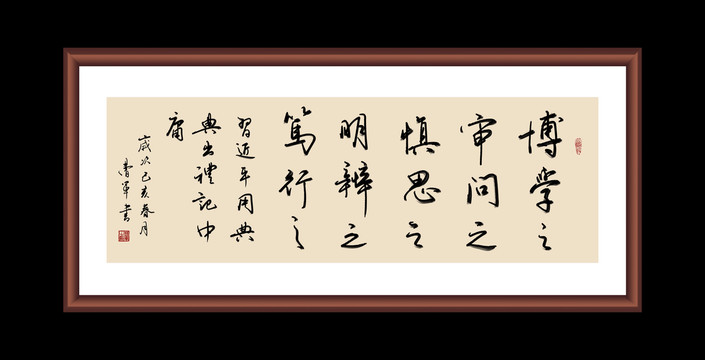 博学之
审问之
慎思之
明辨之
笃行之
習近平用典
典出禮記中
庸
歲次己亥春月
魯軍書